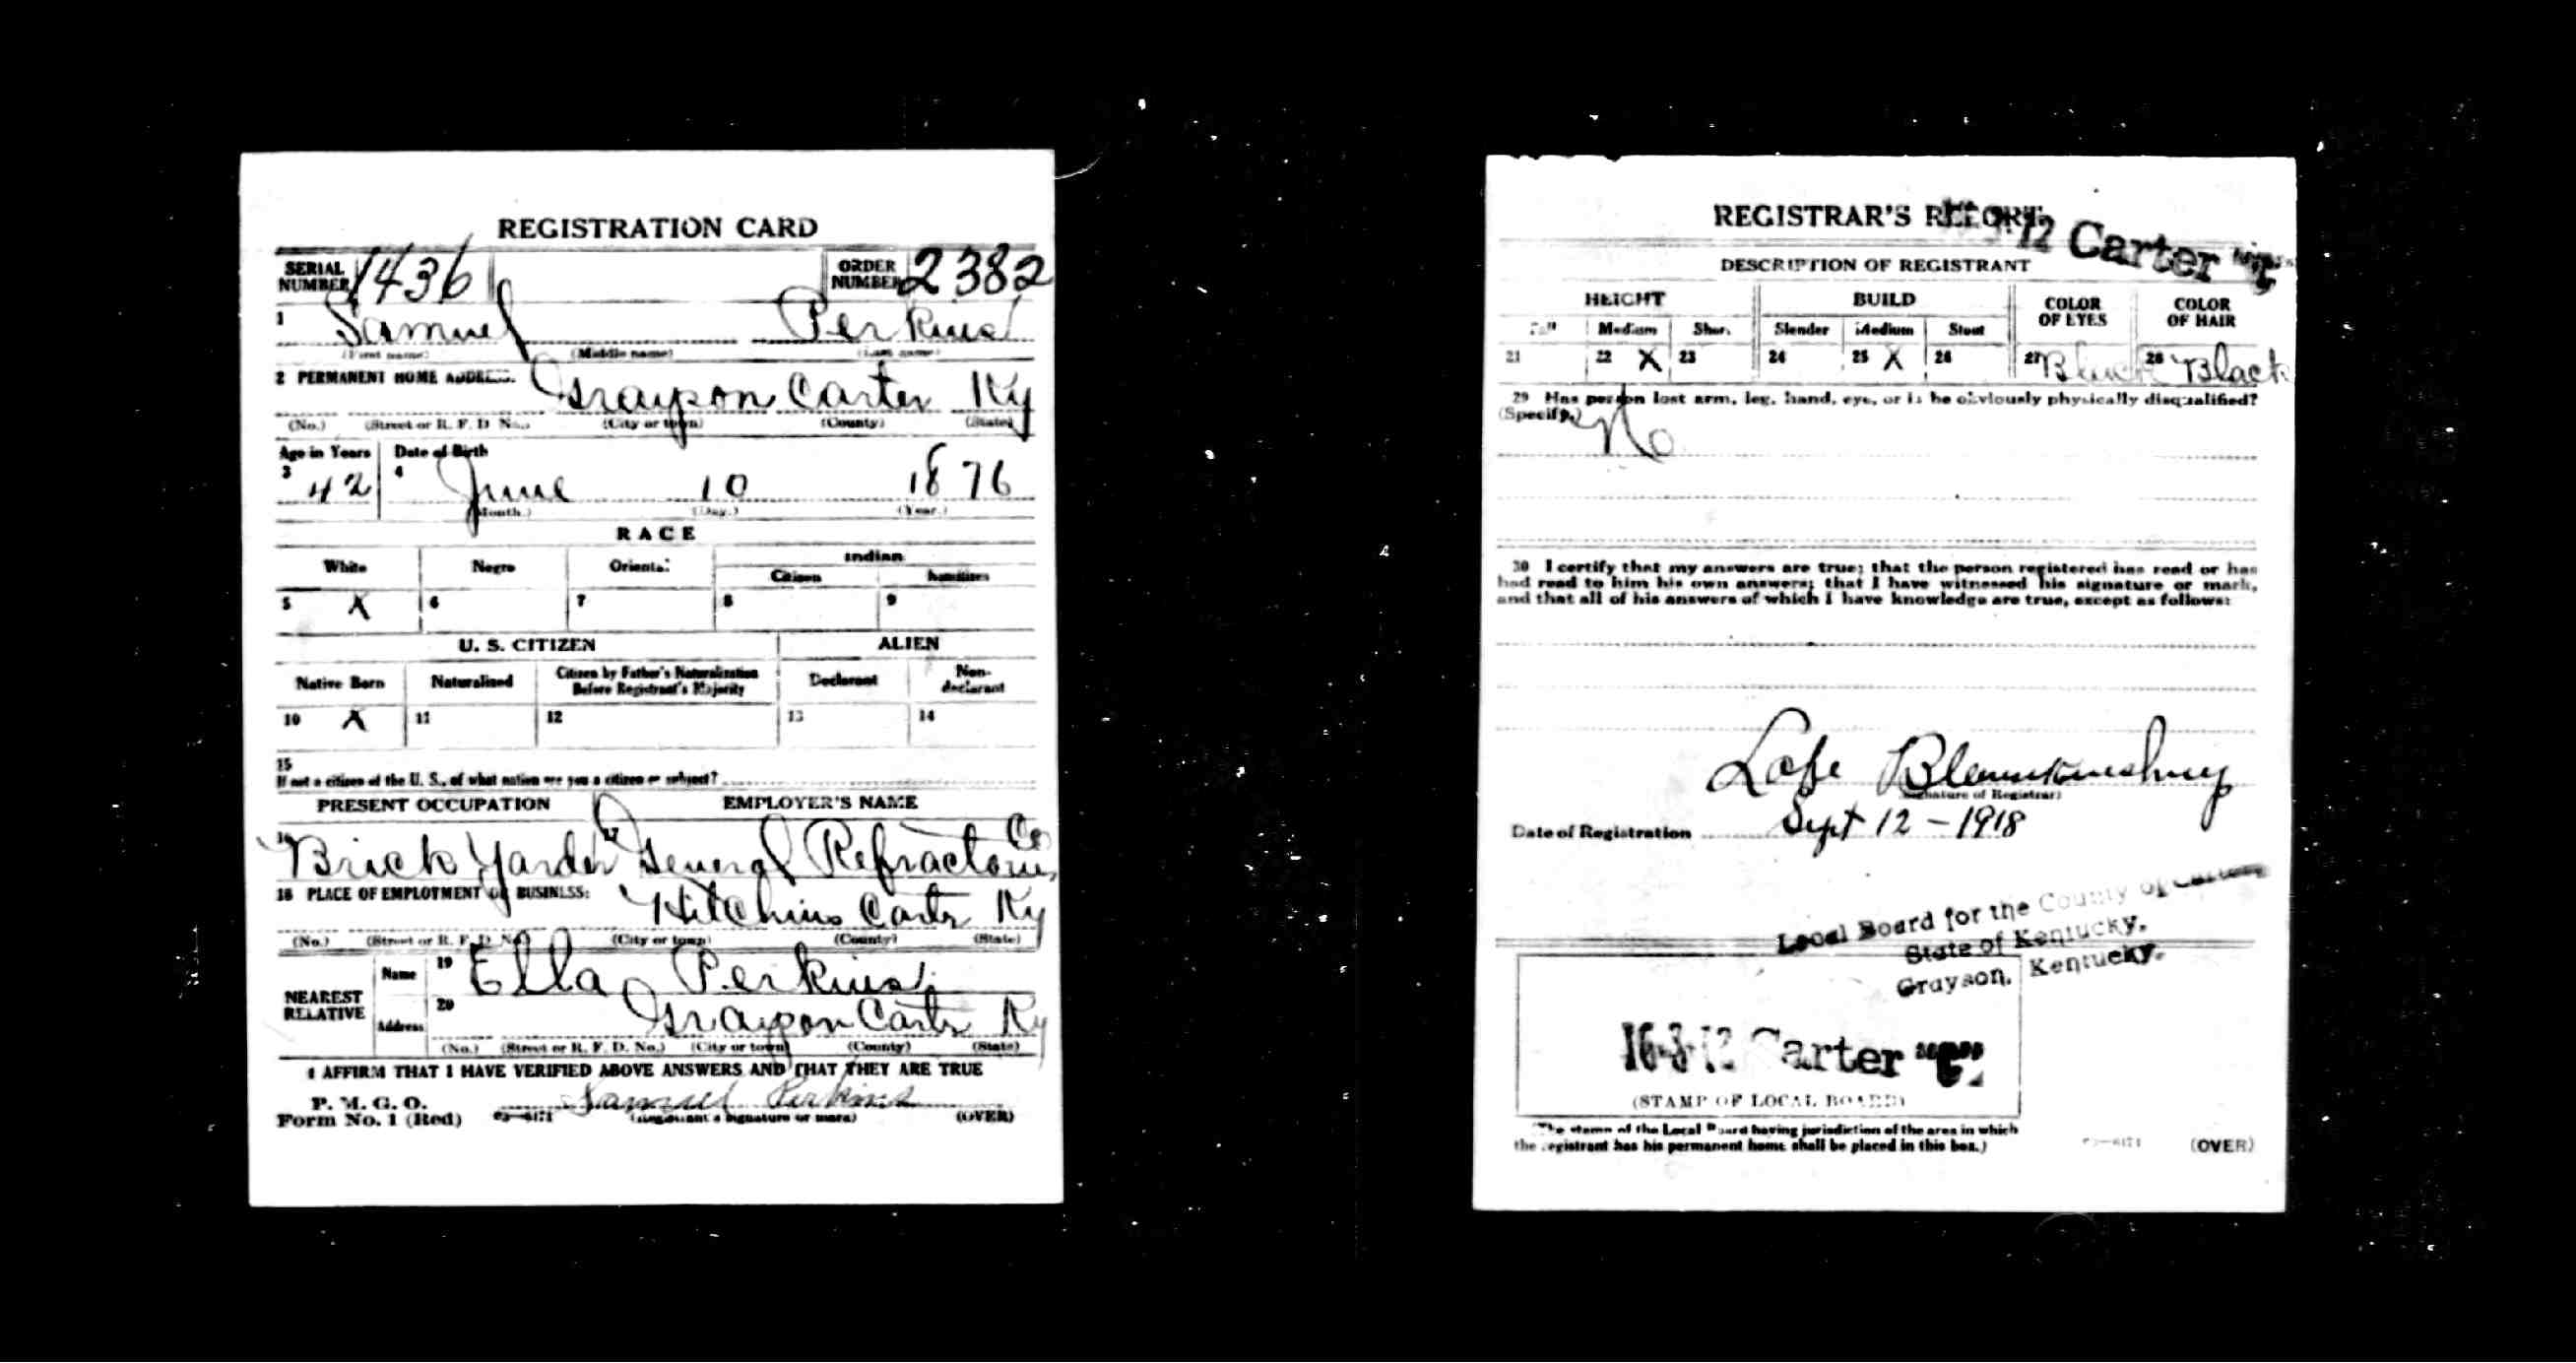 REGISTRATION CARD
SERIAL NUMBER 1436 ORDER NUMBER 2382
1 Samuel Perkins
(First name) (Middle name) (Last name)
2 PERMANENT HOME ADDRESS: Grayson Carter Ky
(No.) (Street or R. F. D. No.) (City or town) (County) (State)
Age in Years Date of Birth
3 42 4 June 10 1876
(Month.) (Day.) (Year.)
RACE
White Negro Oriental Indian
Citizen
5 X 6 7 8 9
U. S. CITIZEN ALIEN
Native Born Naturalized Citizen by Father's Naturalization Before Registrant's Majority Declarant Non-declarant
10 X 11 12 13 14
15
If not a citizen of the U. S., of what nation are you a citizen or subject?
PRESENT OCCUPATION EMPLOYER'S NAME
16 Brick Yarder 17 General Refractories Co
18 PLACE OF EMPLOYMENT OR BUSINESS: Hitchins Carter Ky
(No.) (Street or R. F. D. No.) (City or town) (County) (State)
NEAREST RELATIVE Name 19 Ella Perkins
Address 20 Grayson Carter Ky
(No.) (Street or R. F. D. No.) (City or town) (County) (State)
I AFFIRM THAT I HAVE VERIFIED ABOVE ANSWERS AND THAT THEY ARE TRUE
P. M. G. O.
Form No. 1 (Red) Samuel Perkins
(Registrant's signature or mark) (OVER)
REGISTRAR'S REPORT
Carter
DESCRIPTION OF REGISTRANT
HEIGHT BUILD COLOR OF EYES COLOR OF HAIR
Tall Medium Short Slender Medium Stout
21 22 X 23 24 25 X 26 27 28 Black
29 Has person lost arm, leg, hand, eye, or is he obviously physically disqualified?
(Specify.) No
30 I certify that my answers are true; that the person registered has read or has
had read to him his own answers; that I have witnessed his signature or mark,
and that all of his answers of which I have knowledge are true, except as follows:
(Signature of Registrar)
Date of Registration Sept 12 - 1918
Local Board for the County of Carter,
State of Kentucky,
Grayson, Kentucky.
16-3-12 Carter
(STAMP OF LOCAL BOARD)
(The stamp of the Local Board having jurisdiction of the area in which
the registrant has his permanent home shall be placed in this box.)
(OVER)